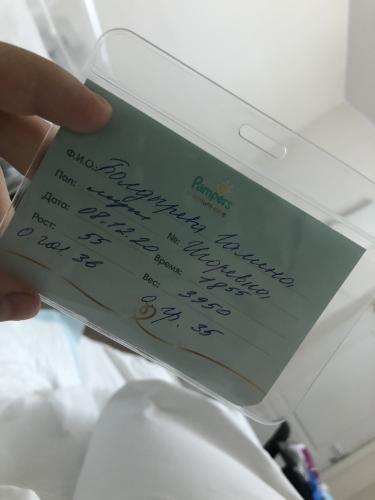 Pampers
Ф.И.О.: Болдырева Галина,
Пол: муж №: Игоревна,
Дата: 08.12.20 Время: 1855
Рост: 55 Вес: 3950
О. гол. 36 О. гр. 35